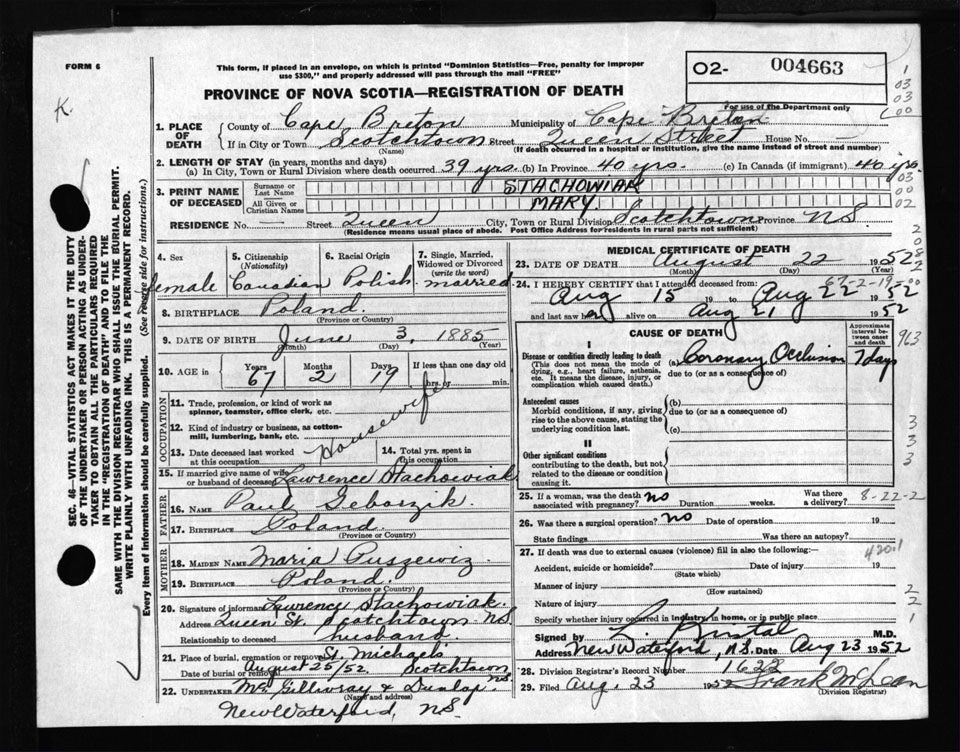 FORM 6
This form, if placed in an envelope, on which is printed "Dominion Statistics—Free, penalty for improper
use $300," and properly addressed will pass through the mail "FREE"
02- 004663
For use of the Department only
K.
PROVINCE OF NOVA SCOTIA—REGISTRATION OF DEATH
1. PLACE OF DEATH
County of Cape Breton Municipality of Cape Breton
If in City or Town Scotchtown Street Queen Street House No. —
(Name) (If death occurred in a hospital or institution, give the name instead of street and number)
2. LENGTH OF STAY (in years, months and days)
(a) In City, Town or Rural Division where death occurred 39 yrs. (b) In Province 40 yrs. (c) In Canada (if immigrant) 40 yrs.
3. PRINT NAME OF DECEASED
Surname or Last Name STACHOWIAK
All Given or Christian Names MARY
RESIDENCE No. — Street Queen City, Town or Rural Division Scotchtown Province N S
(Residence means usual place of abode. Post Office Address for residents in rural parts not sufficient)
4. Sex female
5. Citizenship (Nationality) Canadian
6. Racial Origin Polish
7. Single, Married, Widowed or Divorced (write the word) married
8. BIRTHPLACE Poland.
(Province or Country)
9. DATE OF BIRTH June 3, 1885
(Month) (Day) (Year)
10. AGE in Years 67 Months 2 Days 19 If less than one day old hrs. or min.
OCCUPATION
11. Trade, profession, or kind of work as spinner, teamster, office clerk, etc.
12. Kind of industry or business, as cotton-mill, lumbering, bank, etc.
Housewife
13. Date deceased last worked at this occupation
14. Total yrs. spent in this occupation
15. If married give name of wife or husband of deceased Lawrence Stachowiak
FATHER
16. Name Paul
17. Birthplace Poland.
(Province or Country)
MOTHER
18. MAIDEN NAME Maria
19. BIRTHPLACE Poland.
(Province or Country)
20. Signature of informant Lawrence Stachowiak.
Address Queen St. Scotchtown N.S.
Relationship to deceased husband.
21. Place of burial, cremation or removal St. Michael's
Date of burial or removal August 25/52. Scotchtown NS
22. UNDERTAKER McGillivray & Dunlap.
(Name and address)
New Waterford, N.S.
MEDICAL CERTIFICATE OF DEATH
23. DATE OF DEATH August 22 1952
(Month) (Day) (Year)
24. I HEREBY CERTIFY that I attended deceased from: 67-2-19
Aug 15 19 to Aug 22 1952
and last saw her alive on Aug 21 1952
CAUSE OF DEATH
Approximate interval between onset and death
I
Disease or condition directly leading to death (a) Coronary Occlusion 7 days
(This does not mean the mode of dying, e.g., heart failure, asthenia, etc. It means the disease, injury, or complication which caused death.)
due to (or as a consequence of)
Antecedent causes
Morbid conditions, if any, giving rise to the above cause, stating the underlying condition last.
(b)
due to (or as a consequence of)
(c)
II
Other significant conditions
contributing to the death, but not related to the disease or condition causing it.
25. If a woman, was the death associated with pregnancy? no Duration weeks. Was there a delivery? 8-22-2
26. Was there a surgical operation? no Date of operation 19
State findings Was there an autopsy?
27. If death was due to external causes (violence) fill in also the following:—
420.1
Accident, suicide or homicide? Date of injury 19
(State which)
Manner of injury
(How sustained)
Nature of injury
Specify whether injury occurred in industry, in home, or in public place
Signed by M.D.
Address New Waterford, N.S. Date Aug 23 1952
28. Division Registrar's Record Number 1622
29. Filed Aug. 23 1952 Frank McLean
(Division Registrar)
SEC. 46—VITAL STATISTICS ACT MAKES IT THE DUTY
OF THE UNDERTAKER OR PERSON ACTING AS UNDER-
TAKER TO OBTAIN ALL THE PARTICULARS REQUIRED
IN THE "REGISTRATION OF DEATH" AND TO FILE THE
SAME WITH THE DIVISION REGISTRAR WHO SHALL ISSUE THE BURIAL PERMIT.
WRITE PLAINLY WITH UNFADING INK. THIS IS A PERMANENT RECORD.
Every item of information should be carefully supplied. (See reverse side for instructions.)
1
03
03
00
03
00
02
963
3
3
3
2
2
1